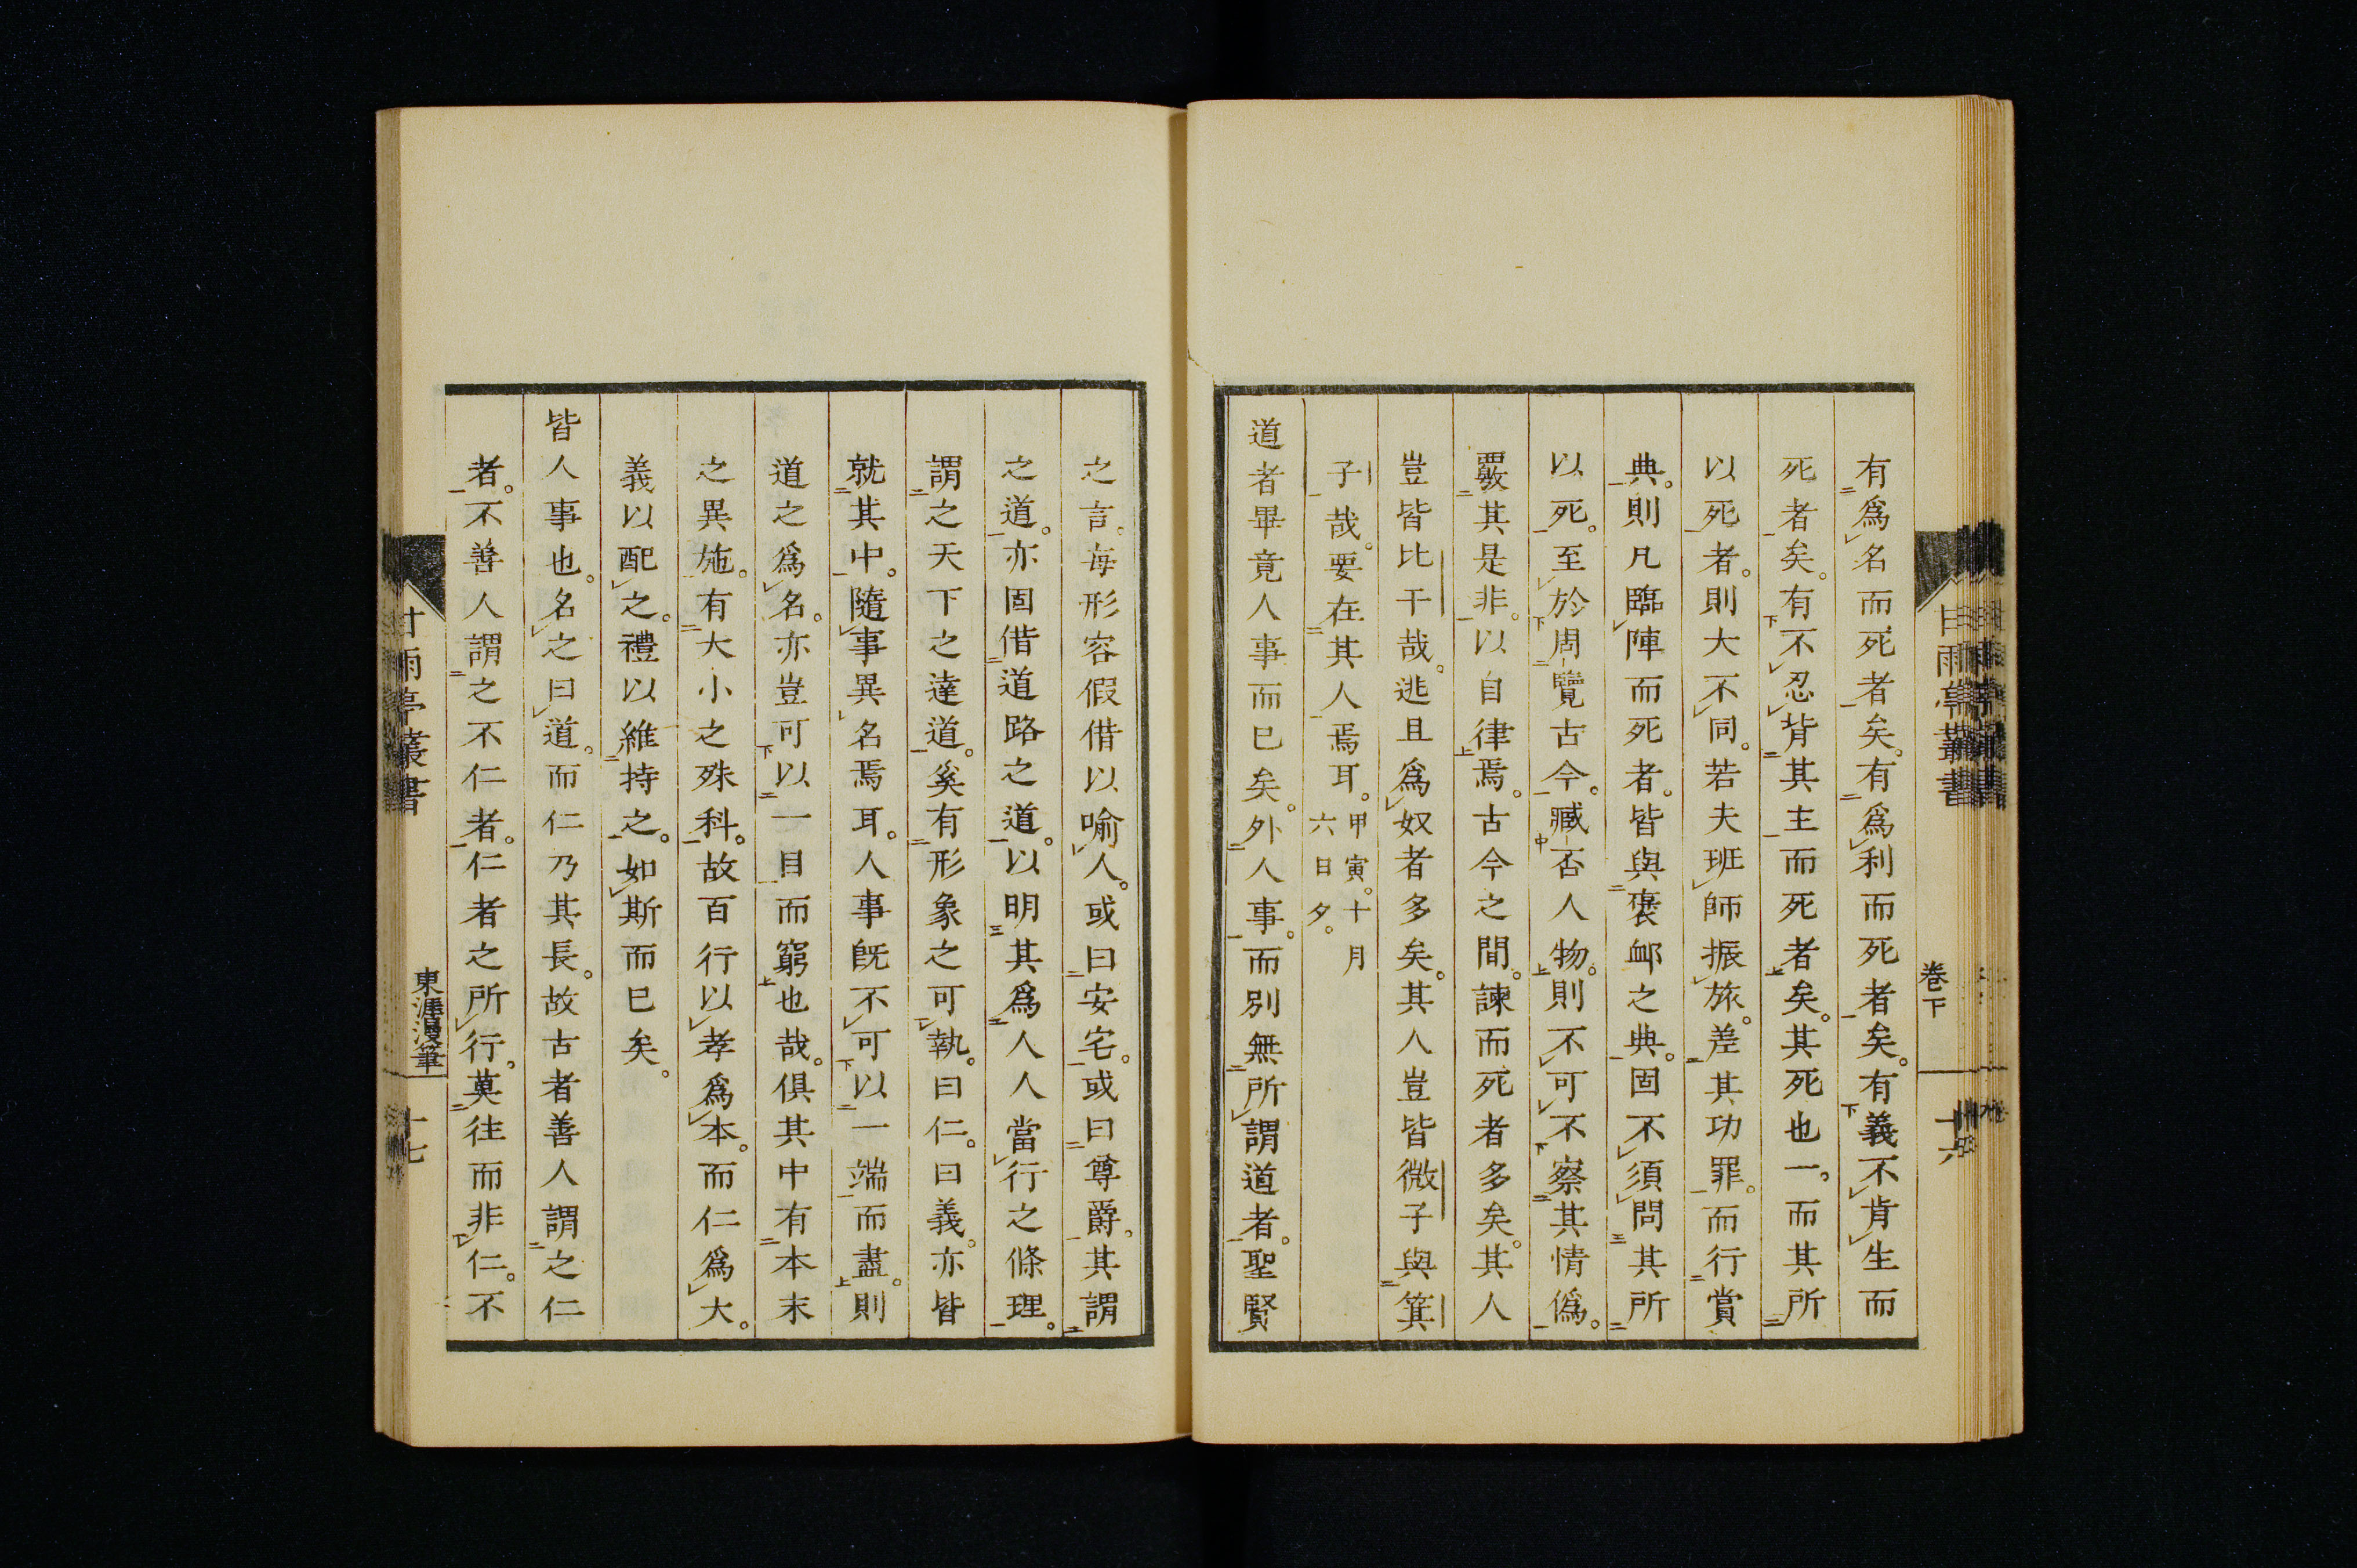 有爲名而死者矣。有爲利而死者矣。有義不肯生而
死者矣。有不忍背其主而死者矣。其死也一。而其所
以死者。則大不同。若夫班師振旅。差其功罪。而行賞
典。則凡臨陣而死者。皆與褒卹之典。固不須問其所
以死。至於周覽古今。臧否人物。則不可不察其情僞。
覈其是非。以自律焉。古今之間。諫而死者多矣。其人
豈皆比干哉。逃且爲奴者多矣。其人豈皆微子與箕
子哉。要在其人焉耳。甲寅。十月
六日夕。
道者畢竟人事而已矣。外人事。而別無所謂道者。聖賢
卷下
十六
之言。每形容假借以喩人。或曰安宅。或曰尊爵。其謂
之道。亦固借道路之道。以明其爲人人當行之條理。
謂之天下之達道。奚有形象之可執。曰仁。曰義。亦皆
就其中。隨事異名焉耳。人事旣不可以一端而盡。則
道之爲名。亦豈可以一目而窮也哉。俱其中有本末
之異施。有大小之殊科。故百行以孝爲本。而仁爲大。
義以配之。禮以維持之。如斯而已矣。
皆人事也。名之曰道。而仁乃其長。故古者善人謂之仁
者。不善人謂之不仁者。仁者之所行。莫往而非仁。不
甘雨亭叢書
東涯漫筆
十七